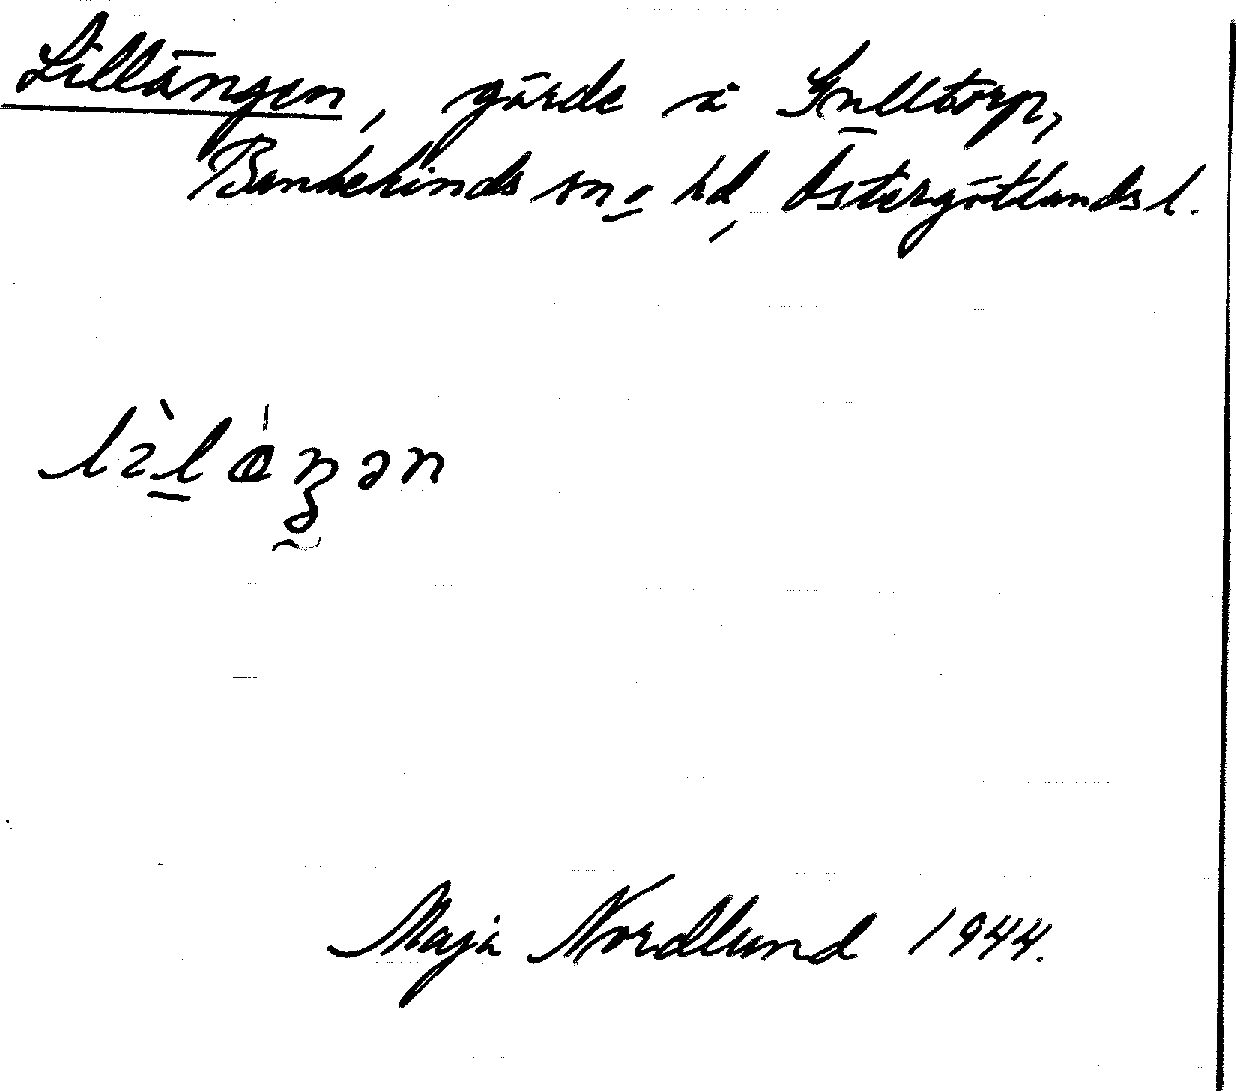 Lillängen, gärde å Kulltorp,
Bankekinds sn o hd, Östergötlands l.
Maja Nordlund 1944.